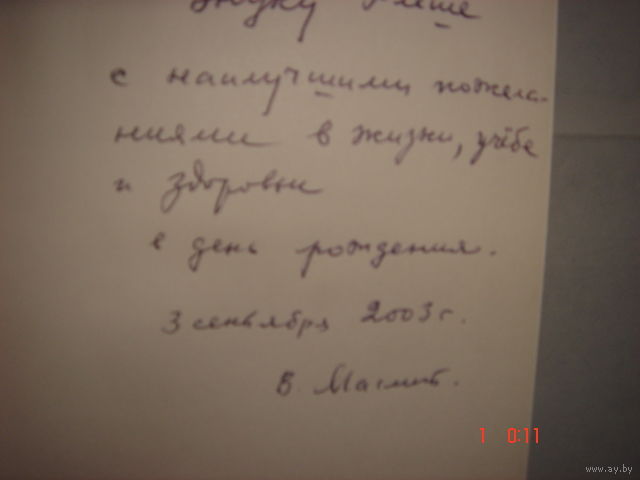 Внуку
с наилучшими пожела-
ниями в жизни, учёбе
и здоровьи
в день рождения.
3 сентября 2003 г.
В.
1 0:11
www.ay.by